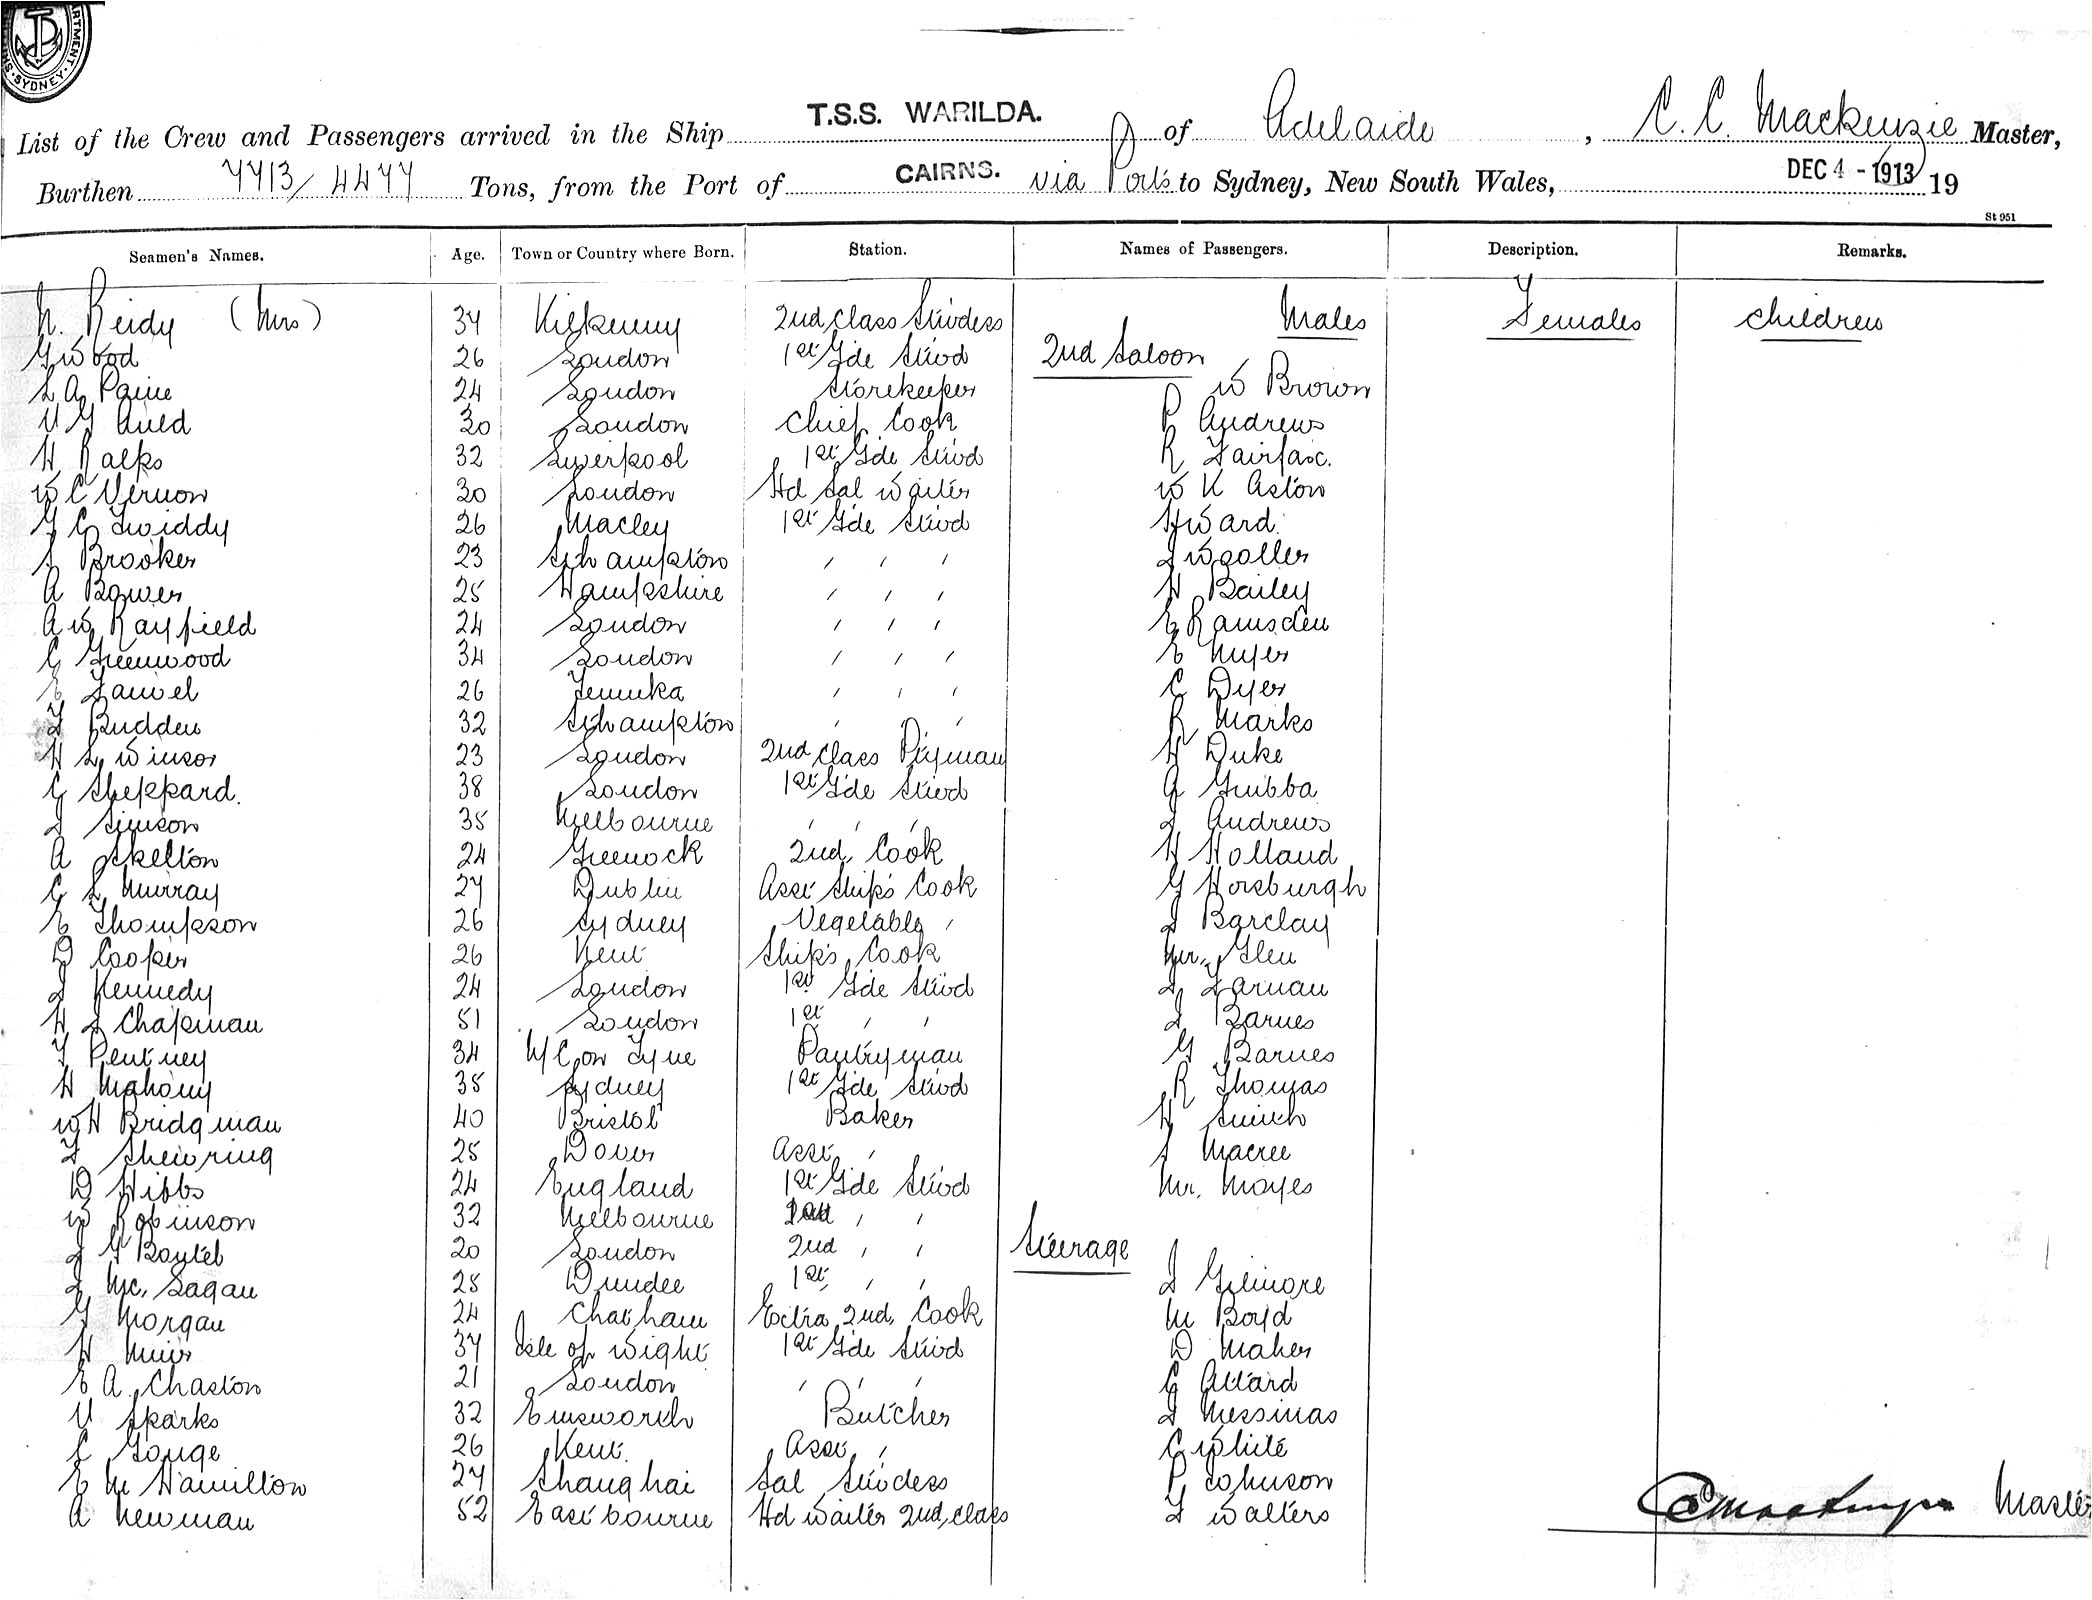 SYDNEY
T.S.S. WARILDA.
List of the Crew and Passengers arrived in the Ship of Adelaide, C. C. Mackenzie Master,
Burthen 7713/4477 Tons, from the Port of CAIRNS. via Ports to Sydney, New South Wales, DEC 4 - 1913 19
St 951
Seamen's Names. Age. Town or Country where Born. Station. Names of Passengers. Description. Remarks.
N. Reidy (Mrs) 37 Kilkenny 2nd class Stwdess Males Females Children
G Wood 26 London 1st Gde Stwd 2nd Saloon
L A Paine 24 London Storekeeper W Brown
V G Auld 30 London Chief Cook P Andrews
H Ralps 32 Liverpool 1st Gde Stwd R Fairfax.
W C Vernon 30 London Hd Sal Waiter W K Aston
G C Twiddy 26 Macley 1st Gde Stwd H Ward.
S Brooker 23 Sthampton ' ' ' J Woller
A Bower 25 Hampshire ' ' ' H Bailey
A W Rayfield 24 London ' ' ' E Ramsden
C Greenwood 34 London ' ' ' E Myer
E Fauvel 26 Temuka ' ' ' C Dyer
F Budden 32 Sthampton ' ' R Marks
H L Winsor 23 London 2nd class Ptyman H Duke
C Sheppard. 38 London 1st Gde Stwd A Grubba
J Simson 35 Melbourne ' ' ' J Andrews
A Skelton 24 Greenock 2nd Cook H Holland
C L Murray 27 Dublin Asst Ship's Cook G Horsburgh
E Thompson 26 Sydney Vegetable ' J Barclay
D Cooper 26 Kent Ship's Cook Mr. Glen
J Kennedy 24 London 1st Gde Stwd J Farnan
H J Chapman 51 London 1st ' ' J Barnes
F Pentney 34 N/C on Tyne Pantryman G Barnes
H Mahony 35 Sydney 1st Gde Stwd R Thomas
W H Bridgman 40 Bristol Baker H Smith
F Shewring 25 Dover Asst ' S Macree
D Hibbs 24 England 1st Gde Stwd Mr. Moyes
W Robinson 32 Melbourne ' '
J G Boytel 20 London 2nd ' ' Steerage
J Mc. Lagan 25 Dundee 1st ' ' J Gilmore
G Morgan 24 Chatham Extra 2nd Cook M Boyd
H Muir 37 Isle of Wight 1st Gde Stwd D Maher
E A Chaston 21 London ' ' ' C Attard
V Sparks 32 Emsworth Butcher J Messinas
C Gouge 26 Kent Asst ' C White
E M Hamilton 27 Shanghai Sal Stwdess P Johnson
A Newman 52 Eastbourne Hd Waiter 2nd class F Walters
Master